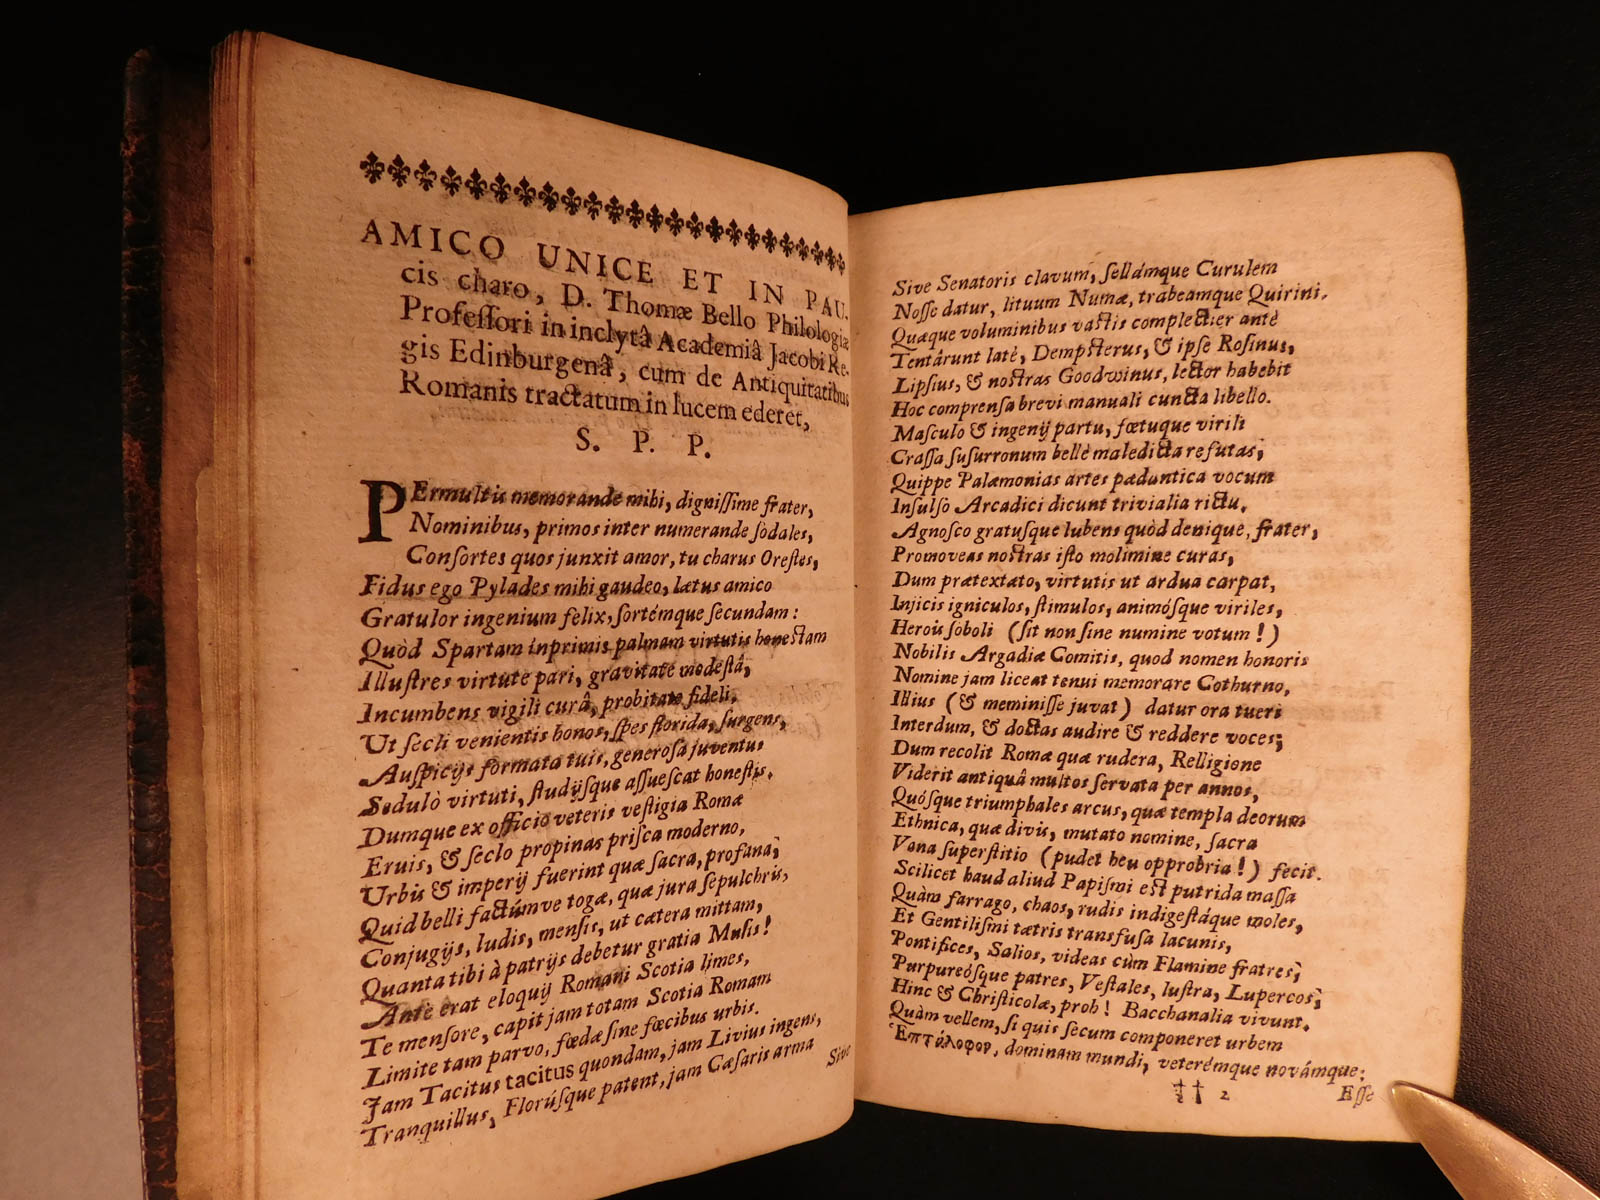 AMICO UNICE ET IN PAU-
cis charo, D. Thomæ Bello Philologiæ
Professori in inclytâ Academiâ Jacobi Re-
gis Edinburgenâ, cum de Antiquitatibus
Romanis tractatum in lucem ederet,
S. P. P.
PErmultis memorande mihi, dignissime frater,
Nominibus, primos inter numerande sodales,
Consortes quos junxit amor, tu charus Orestes,
Fidus ego Pylades mihi gaudeo, lætus amico
Gratulor ingenium felix, sortémque secundam:
Quòd Spartam inprimis palmam virtutis honestam
Illustres virtute pari, gravitate modestâ,
Incumbens vigili curâ, probitate fideli,
Ut secli venientis honos, spes florida, surgens,
Auspicijs formata tuis, generosa juventus
Sedulò virtuti, studijsque assuescat honestis.
Dumque ex officio veteris vestigia Romæ
Eruis, & seclo propinas prisca moderno,
Urbis & imperij fuerint quæ sacra, profana;
Quid belli factúmve togæ, quæ jura sepulchris,
Conjugijs, ludis, mensis, ut cætera mittam,
Quanta tibi à patrijs debetur gratia Musis!
Ante erat eloquij Romani Scotia limes,
Te mensore, capit jam totam Scotia Romam
Limite tam parvo, fœdæ sine fœcibus urbis.
Jam Tacitus tacitus quondam, jam Livius ingens,
Tranquillus, Florúsque patent, jam Cæsaris arma
Sive
Sive Senatoris clavum, sellámque Curulem
Nosse datur, lituum Numæ, trabeamque Quirini.
Quæque voluminibus vastis complectier antè
Tentârunt latè, Dempsterus, & ipse Rosinus,
Lipsius, & nostras Goodwinus, lector habebit
Hoc comprensa brevi manuali cuncta libello.
Masculo & ingenij partu, fœtuque virili
Crassa susurronum bellè maledicta refutas;
Quippe Palæmonias artes pædantica vocum
Insulso Arcadici dicunt trivialia rictu.
Agnosco gratusque lubens quòd denique, frater,
Promoveas nostras isto molimine curas,
Dum prætextato, virtutis ut ardua carpat,
Injicis igniculos, stimulos, animósque viriles,
Herois soboli (sit non sine numine votum!)
Nobilis Argadiæ Comitis, quod nomen honoris
Nomine jam liceat tenui memorare Cothurno,
Illius (& meminisse juvat) datur ora tueri
Interdum, & doctas audire & reddere voces;
Dum recolit Romæ quæ rudera, Relligione
Viderit antiquâ multos servata per annos,
Quósque triumphales arcus, quæ templa deorum
Ethnica, quæ divis, mutato nomine, sacra
Vana superstitio (pudet heu opprobria!) fecit.
Scilicet haud aliud Papismi est putrida massa
Quàm farrago, chaos, rudis indigestáque moles,
Et Gentilismi tætris transfusa lacunis,
Pontifices, Salios, videas cùm Flamine fratres;
Purpureósque patres, Vestales, lustra, Lupercos;
Hinc & Christicolæ, proh! Bacchanalia vivunt.
Quàm vellem, si quis secum componeret urbem
Ἑπτύλοφον, dominam mundi, veterémque novámque;
‡† 2
Esse